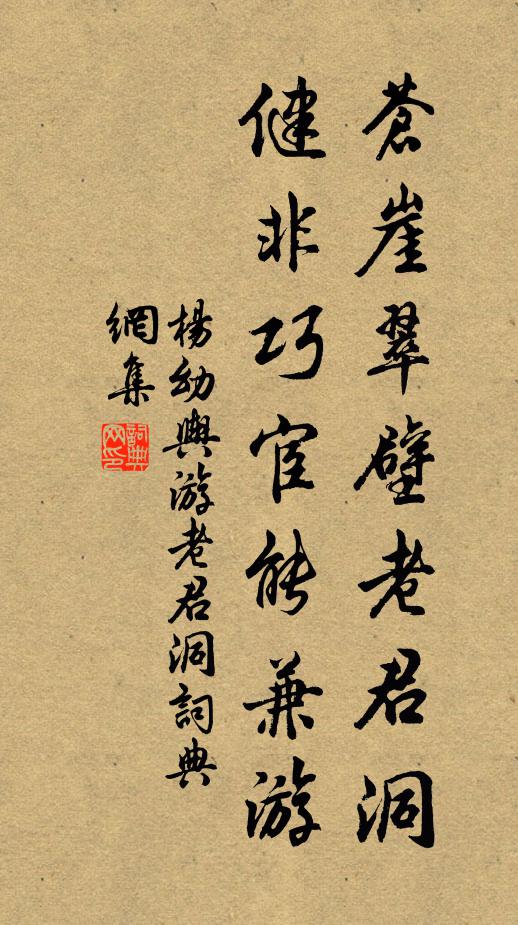 蒼崖翠壁老君洞
健非巧宦能兼游
楊幼輿游老君洞詞典
網集
詞典網印